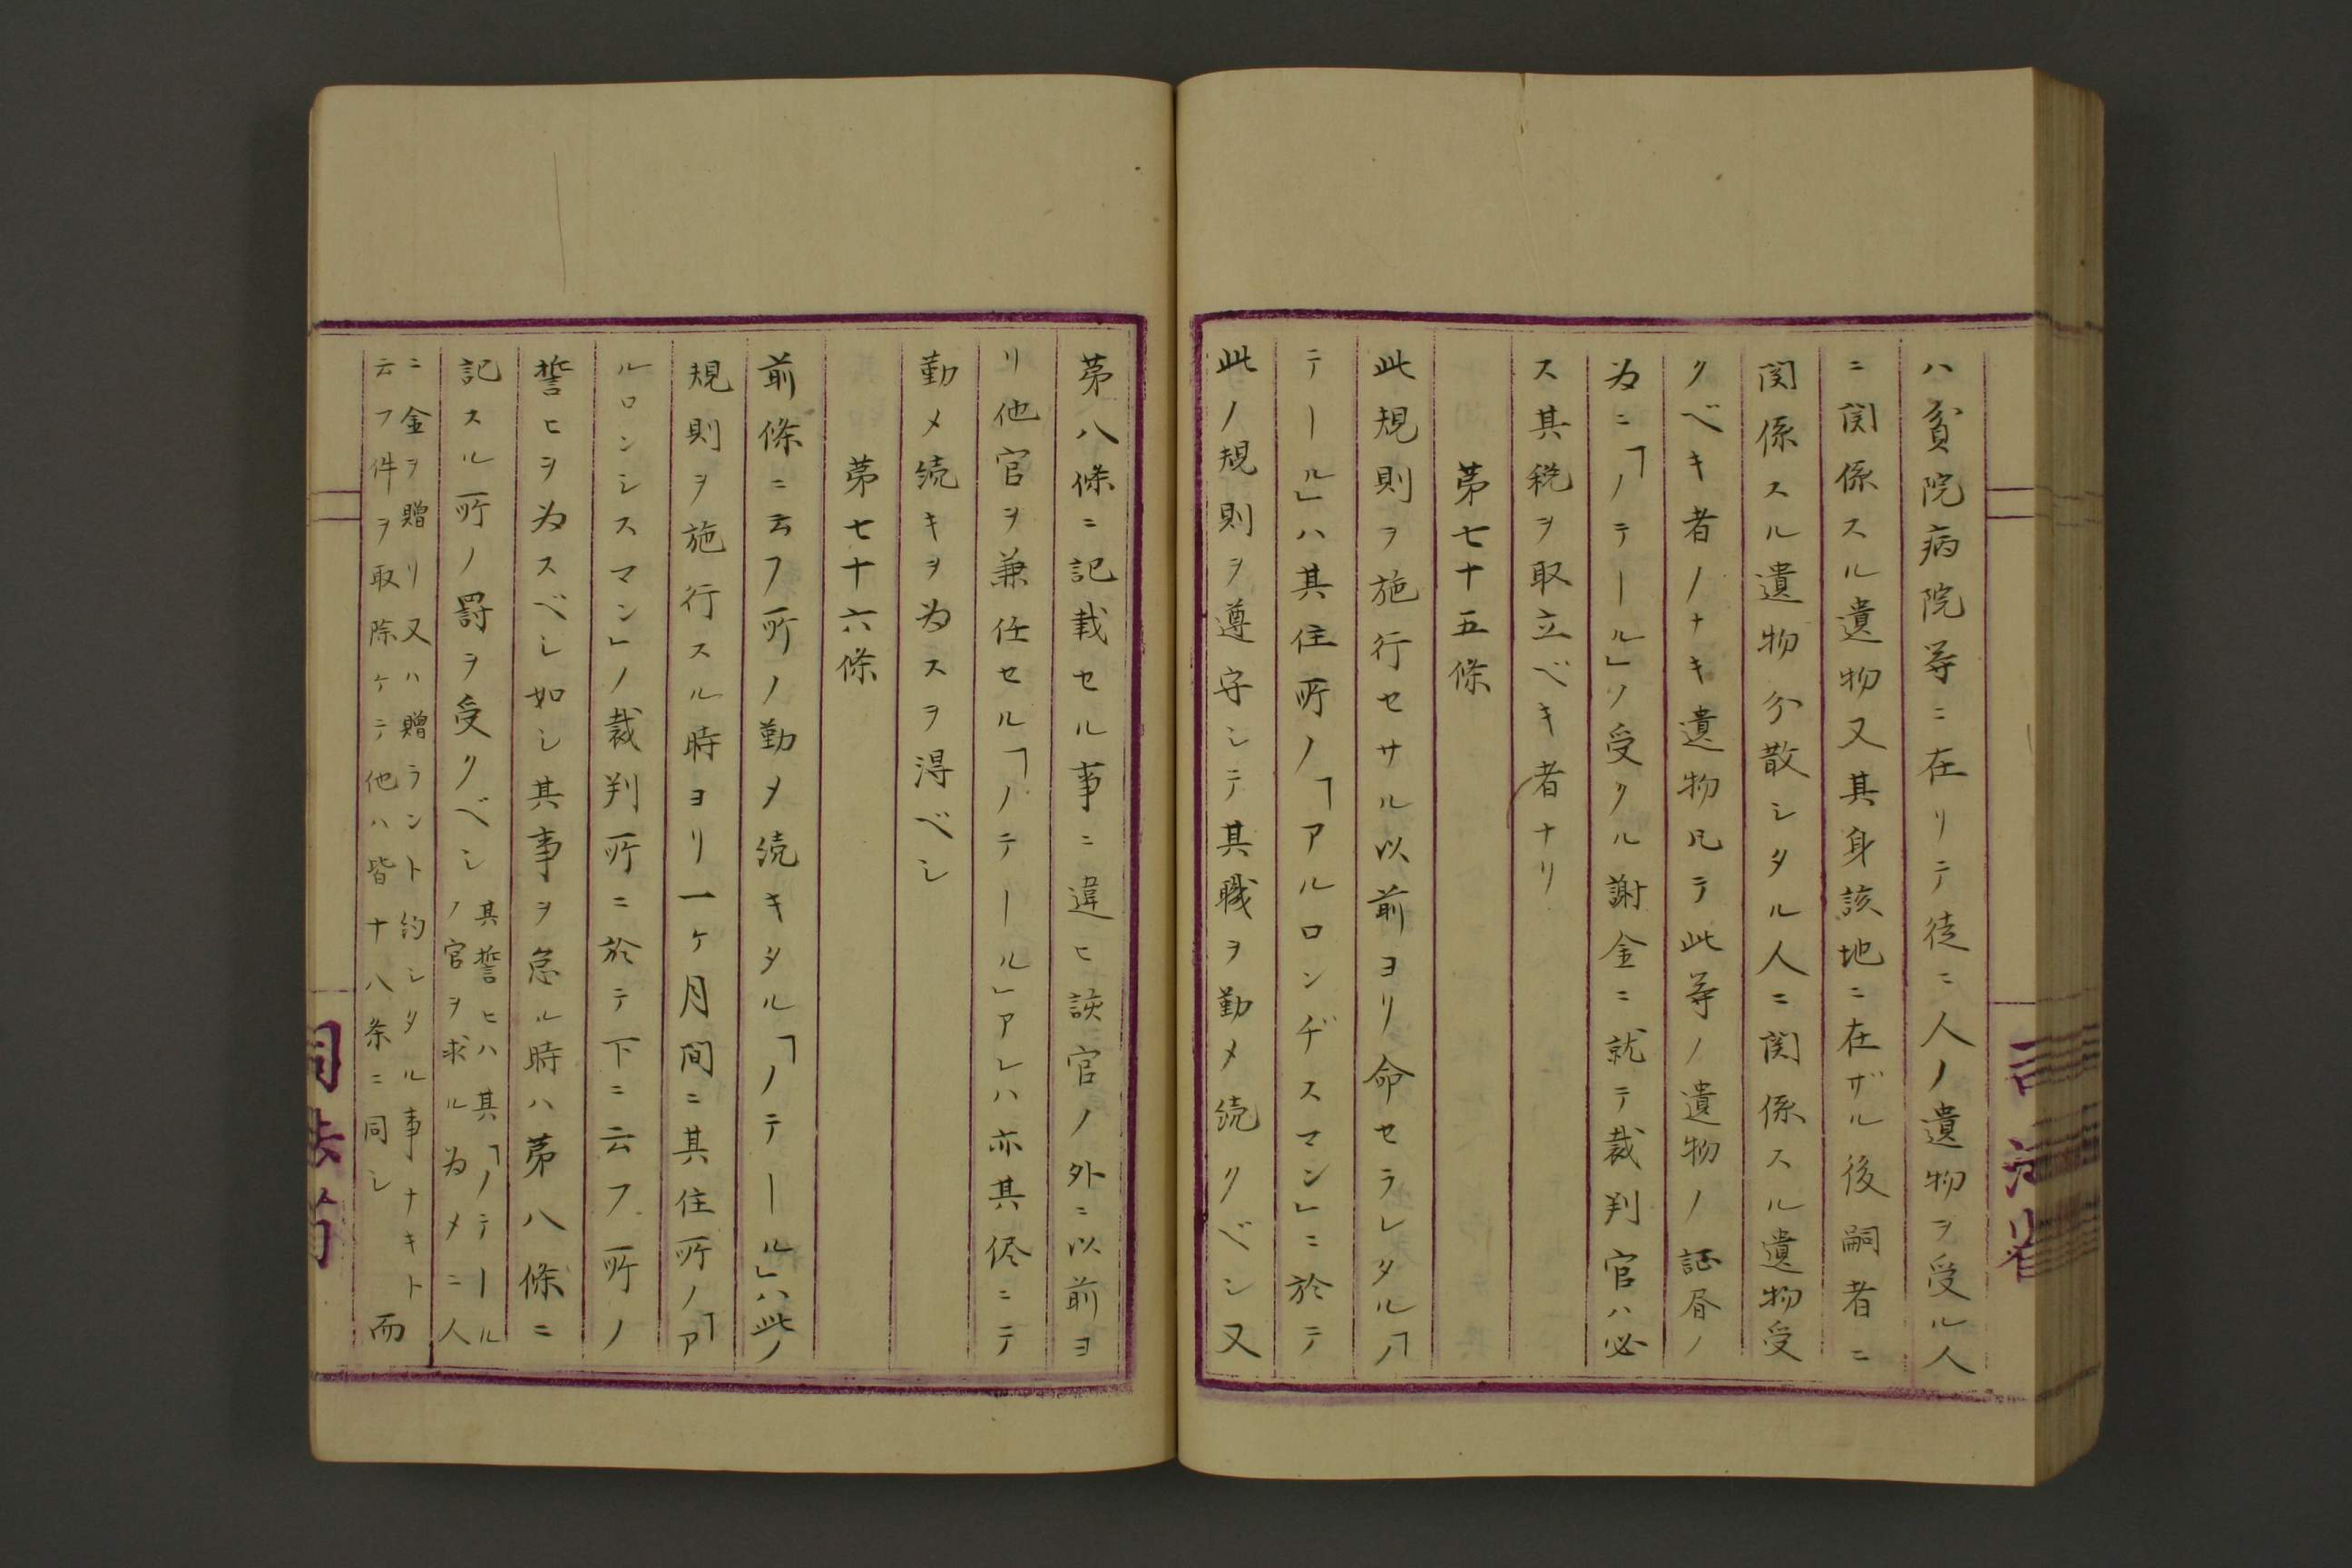 ハ貧院病院等ニ在リテ徒ニ人ノ遺物ヲ受ル人
ニ関係スル遺物又其身該地ニ在ザル後嗣者ニ
関係スル遺物分散シタル人ニ関係スル遺物受
クベキ者ノナキ遺物凡テ此等ノ遺物ノ証書ノ
为ニ「ノテール」ノ受クル謝金ニ就テ裁判官ハ必
ス其税ヲ取立ベキ者ナリ
第七十五條
此規則ヲ施行セサル以前ヨリ命セラレタル「ノ
テール」ハ其住所ノ「アルロンヂスマン」ニ於テ
此ノ規則ヲ遵守シテ其職ヲ勤メ続クベシ又
第八條ニ記載セル事ニ違ヒ該官ノ外ニ以前ヨ
リ他官ヲ兼任セル「ノテール」アレハ亦其侭ニテ
勤メ続キヲ为スヲ得ベシ
第七十六條
前條ニ云フ所ノ勤メ続キタル「ノテール」ハ此ノ
規則ヲ施行スル時ヨリ一ケ月間ニ其住所ノ「ア
ルロンシスマン」ノ裁判所ニ於テ下ニ云フ所ノ
誓ヒヲ为スベシ如シ其事ヲ怠ル時ハ第八條ニ
記スル所ノ罰ヲ受クベシ
其誓ヒハ其「ノテール
ノ官ヲ求ル为メニ人
ニ金ヲ贈リ又ハ贈ラント約シタル事ナキト
云フ件ヲ取除ケテ他ハ皆十八条ニ同シ
而
司法省